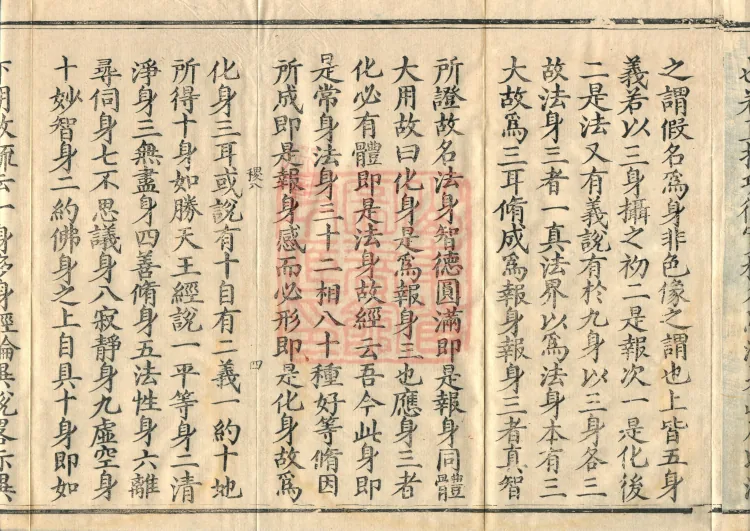 之謂假名爲身非色像之謂也上皆五身
義若以三身攝之初二是報次一是化後
二是法又有義說有於九身以三身各三
故法身三者一真法界以爲法身本有三
大故爲三耳脩成爲報身報身三者真智
所證故名法身智德圓滿即是報身同體
大用故曰化身是爲報身三也應身三者
化必有體即是法身故經云吾今此身即
是常身法身三十二相八十種好等脩因
所成即是報身感而必形即是化身故爲
四
化身三耳或說有十自有二義一約十地
所得十身如勝天王經說一平等身二清
淨身三無盡身四善脩身五法性身六離
尋伺身七不思議身八寂靜身九虛空身
十妙智身二約佛身之上自具十身即如